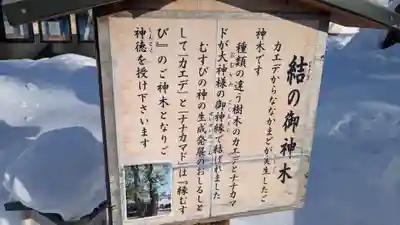 結の御神木
カエデからななかまどが共生したご
神木です
種類の違う樹木のカエデとナナカマ
ドが大神様の御神縁で結ばれました
むすびの神の生成発展のおしるしと
して「カエデ」と「ナナカマド」は『縁むす
び』のご神木となりご
神徳を授け下さいます